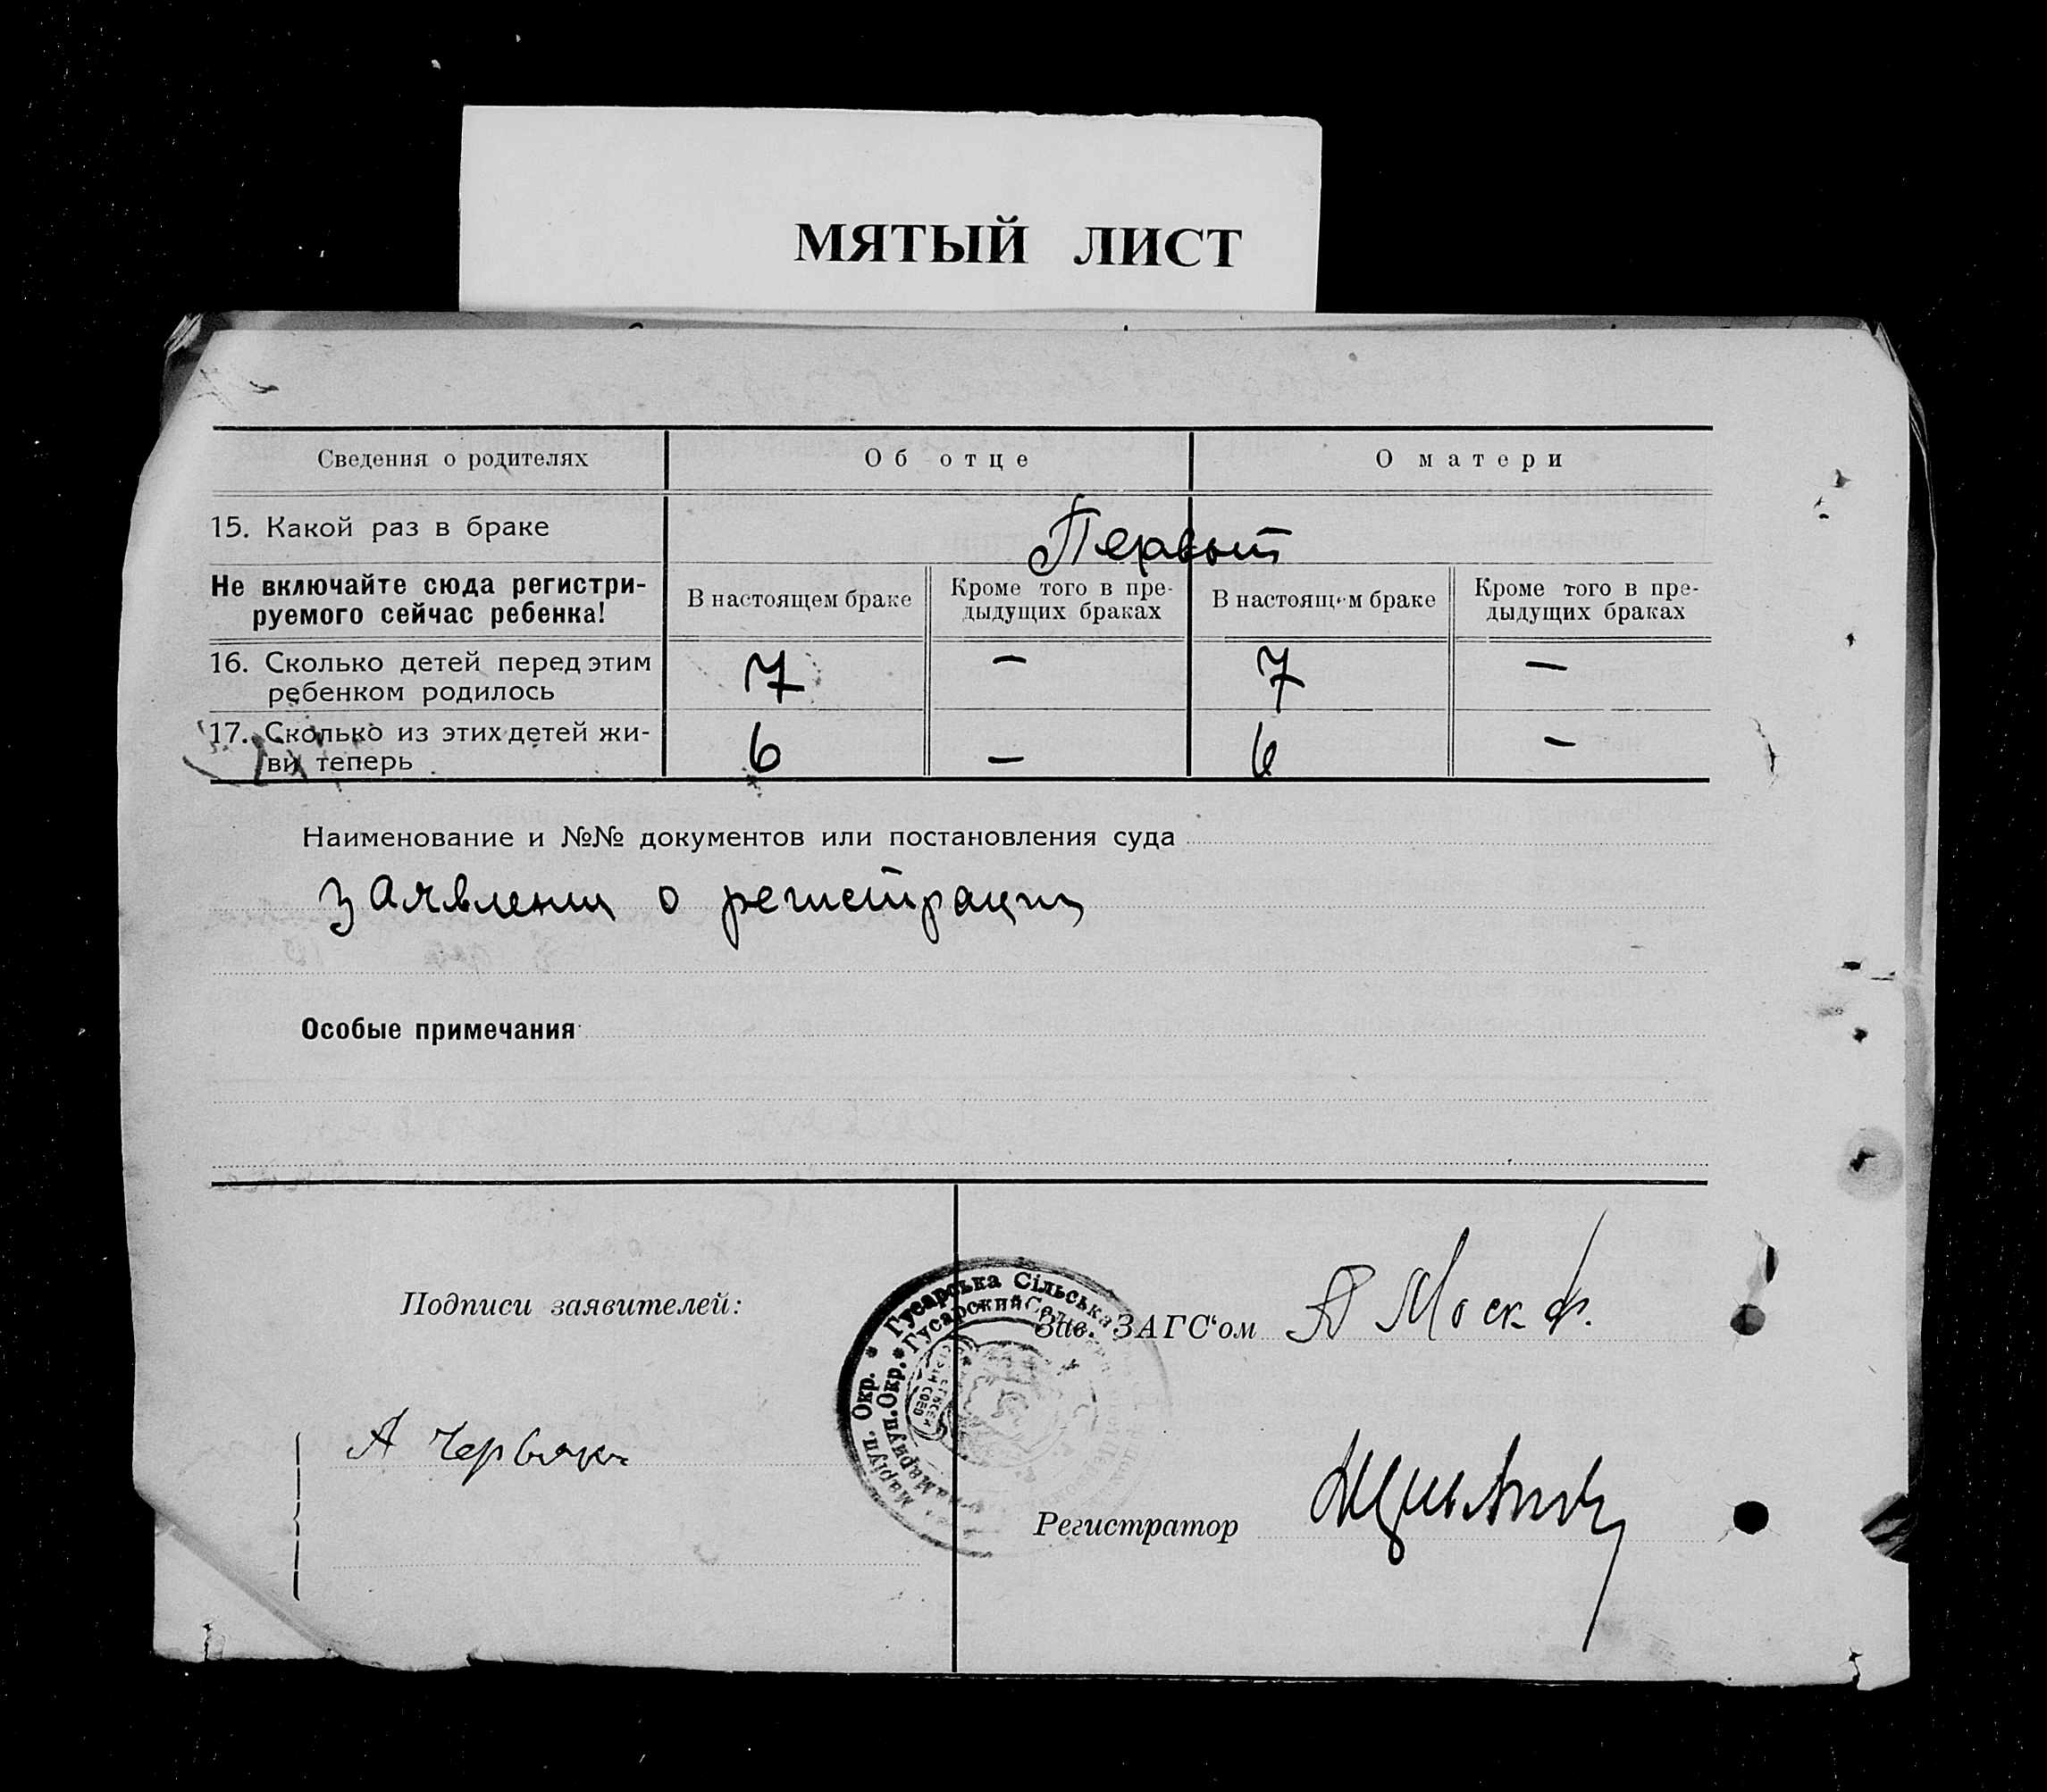 МЯТЫЙ ЛИСТ
Сведения о родителях Об отце О матери
15. Какой раз в браке Первый
Не включайте сюда регистри-
руемого сейчас ребенка!
В настоящем браке
Кроме того в пре-
дыдущих браках
В настоящем браке
Кроме того в пре-
дыдущих браках
16. Сколько детей перед этим
ребенком родилось
7 – 7 –
17. Сколько из этих детей жи-
вы теперь
6 – 6 –
Наименование и №№ документов или постановления суда
заявлении о регистрации
Особые примечания
Подписи заявителей:
Зав. ЗАГС‘ом
А Червяк
Регистратор
Гусарська Сільська
Маріуп. Окр. *
Гусарский
Мариуп. Окр. *